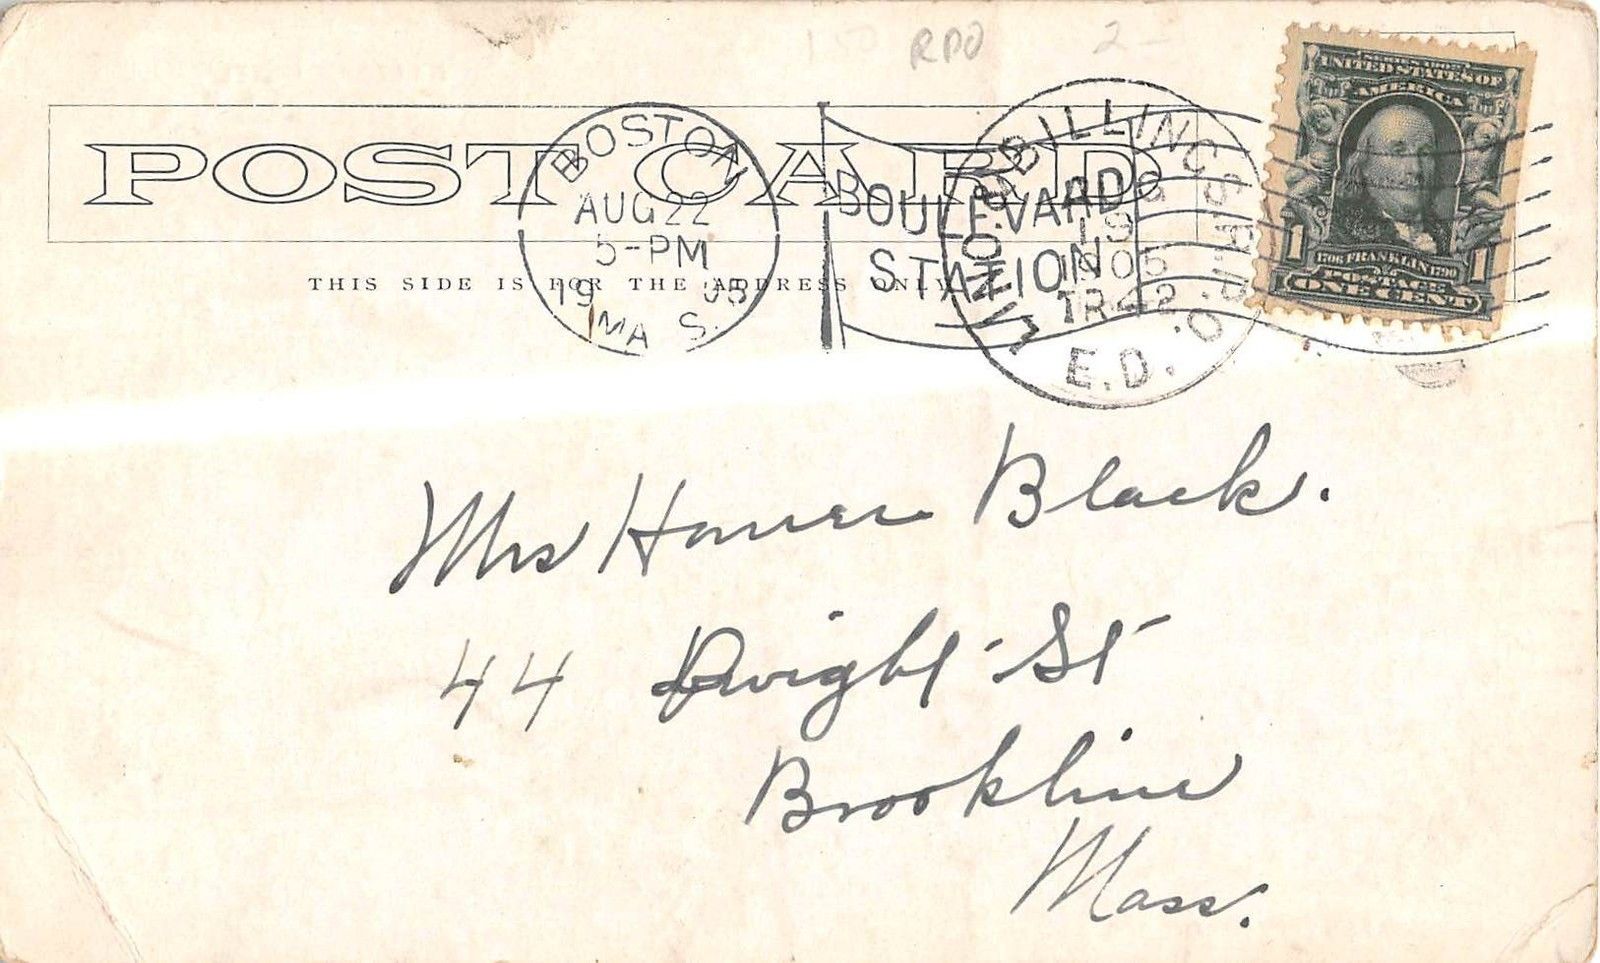 RPO
2-
POST CARD
THIS SIDE IS FOR THE ADDRESS ONLY
BOSTON
AUG 22
5-PM
1905
MASS.
BOULEVARD
STATION
LINC. & BILLINGS R.P.O.
AUG
19
1905
TR 42
E.D.
SERIES 1902
UNITED STATES OF
AMERICA
1706 FRANKLIN 1790
POSTAGE
1 ONE CENT 1
Mrs Homer Black.
44 Dwight St
Brookline
Mass.